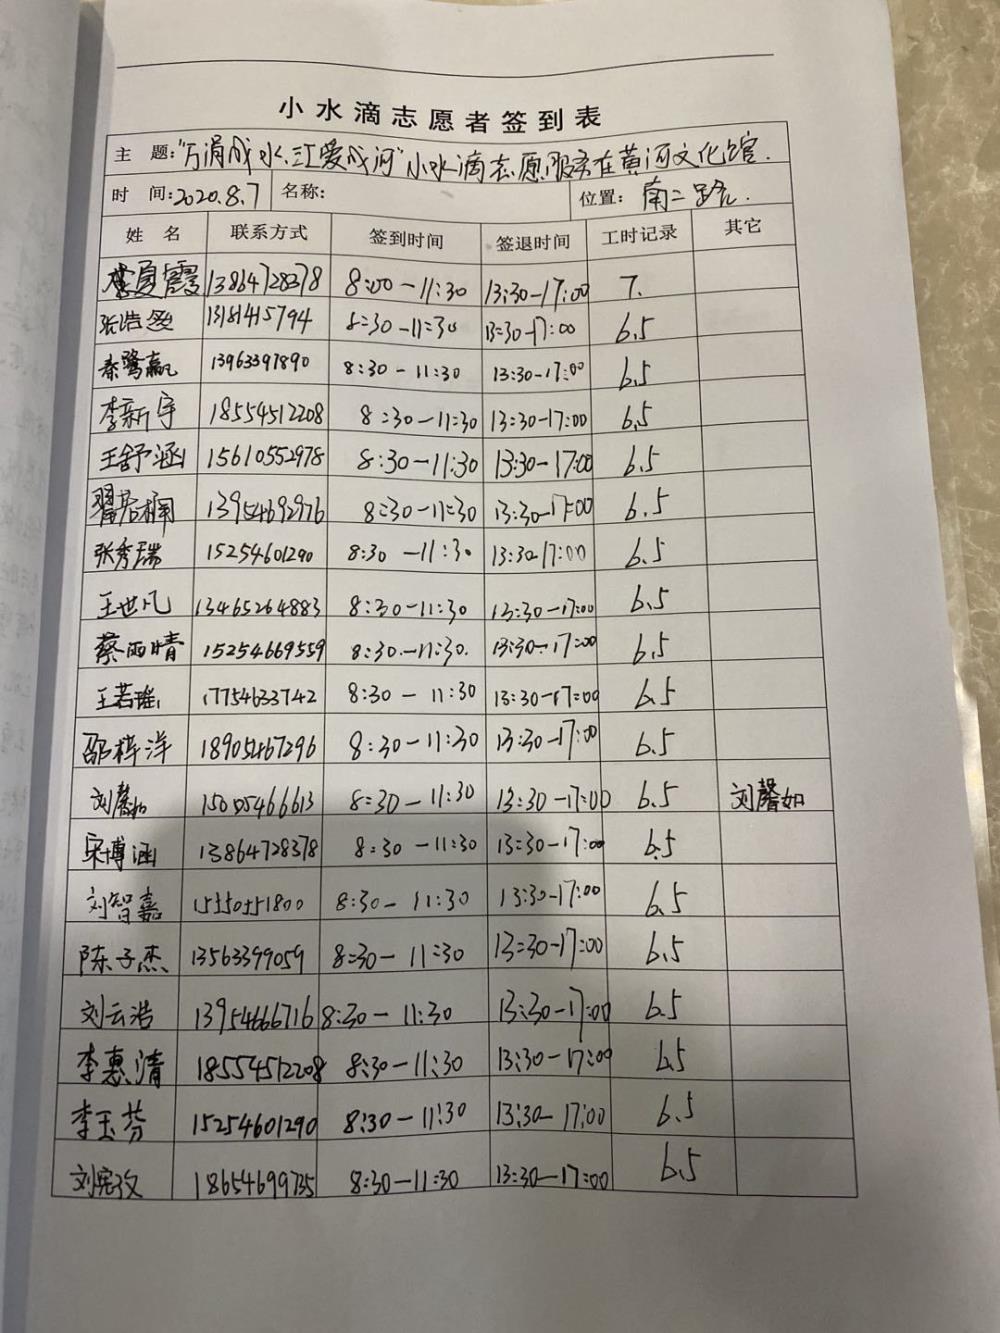 小水滴志愿者签到表
主 题:"万涓成水、汇爱成河"小水滴志愿服务在黄河文化馆.
时 间:2020.8.7 名称: 位置: 南二路.
姓 名 联系方式 签到时间 签退时间 工时记录 其它
李夏霞 13864728378 8:00-11:30 13:30-17:00 7.
张浩 13181415794 8:30-11:30 13:30-17:00 6.5
秦鹭赢 13963397890 8:30-11:30 13:30-17:00 6.5
李新宇 18554512208 8:30-11:30 13:30-17:00 6.5
王舒涵 15610552978 8:30-11:30 13:30-17:00 6.5
翟 13954692976 8:30-11:30 13:30-17:00 6.5
张秀瑞 15254601290 8:30-11:30 13:30-17:00 6.5
王世凡 13465264883 8:30-11:30 13:30-17:00 6.5
蔡雨晴 15254669559 8:30-11:30. 13:30-17:00 6.5
王若瑶 17754633742 8:30-11:30 13:30-17:00 6.5
邵梓洋 18905467296 8:30-11:30 13:30-17:00 6.5
刘馨如 15005466613 8:30-11:30 13:30-17:00 6.5 刘馨如
宋博涵 13864728378 8:30-11:30 13:30-17:00 6.5
刘智嘉 15350551800 8:30-11:30 13:30-17:00 6.5
陈子杰 13563399059 8:30-11:30 13:30-17:00 6.5
刘云浩 13954666716 8:30-11:30 13:30-17:00 6.5
李惠清 18554512208 8:30-11:30 13:30-17:00 6.5
李玉芬 15254601290 8:30-11:30 13:30-17:00 6.5
刘宪孜 18654699735 8:30-11:30 13:30-17:00 6.5